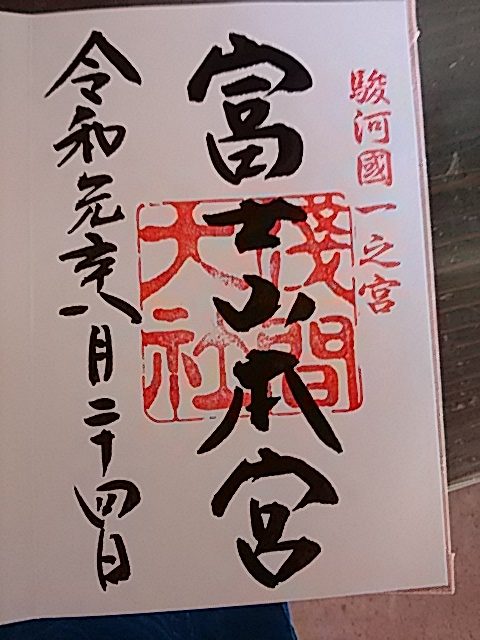 駿河國一之宮
富士山本宮
淺間
大社
令和元年八月二十四日